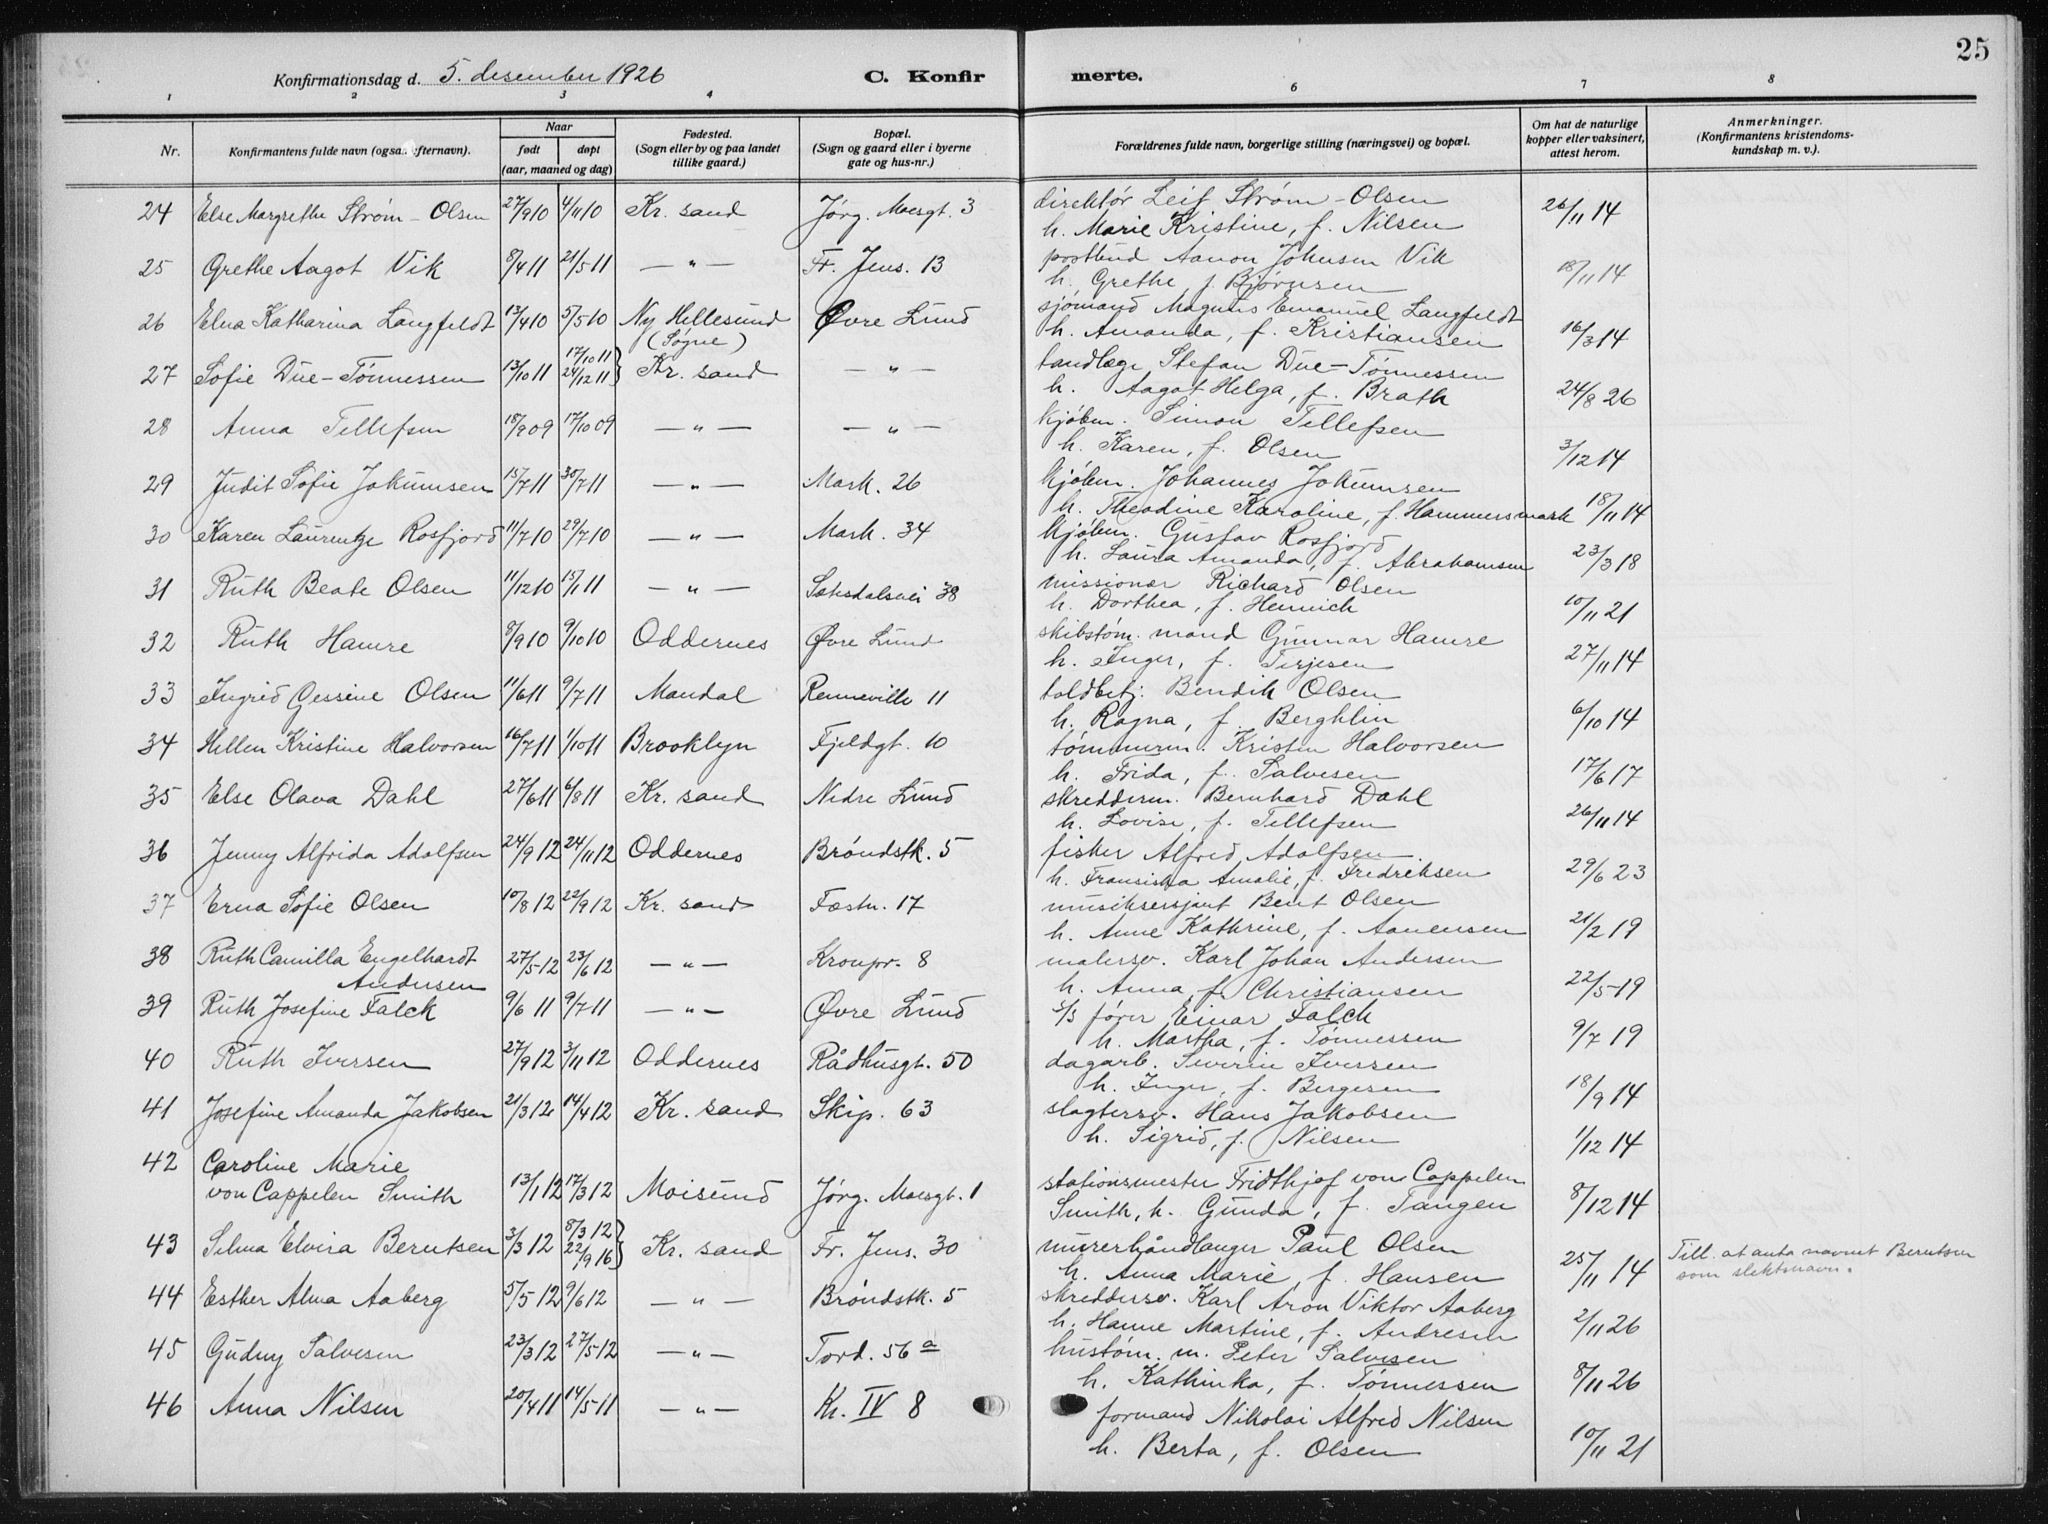 25
Konfirmationsdag d. 5. desember 1926 C. Konfirmerte.
1 2 3 4 6 7 8
Nr. Konfirmantens fulde navn (ogsaa efternavn). Naar født døpt (aar, maaned og dag) Fødested. (Sogn eller by og paa landet tillike gaard.) Bopæl. (Sogn og gaard eller i byerne gate og hus-nr.) Forældrenes fulde navn, borgerlige stilling (næringsvei) og bopæl. Om hat de naturlige kopper eller vaksinert, attest herom. Anmerkninger. (Konfirmantens kristendomskundskap m. v.).
24 Else Margrethe Strøm-Olsen 27/9 10 4/11 10 Kr. sand Jørg. Moesgt. 3 direktør Leif Strøm-Olsen
h. Marie Kristine, f. Nilsen 26/11 14
25 Grethe Aagot Vik 8/4 11 21/5 11 — " — Fr. Jens. 13 postbud Aanon Johnsen Vik
h. Grethe f. Bjørnsen 18/11 14
26 Elna Katharina Langfeldt 13/4 10 5/5 10 Ny Hellesund (Søgne) Øvre Lund sjømand Magnus Emanuel Langfeldt
h. Amanda, f. Kristiansen 16/3 14
27 Sofie Due-Tønnessen 13/10 11 17/10 11 24/12 11 } Kr. sand — " — tandlæge Stefan Due-Tønnessen
h. Aagot Helga, f. Brath 24/8 26
28 Anna Tellefsen 18/9 09 17/10 09 — " — — " — kjøbm. Simon Tellefsen
h. Karen, f. Olsen 3/12 14
29 Judit Sofie Jokumsen 15/7 11 30/7 11 — " — Mark. 26 kjøbm. Johannes Jokumsen
h. Theodine Karoline, f. Hammersmark 18/11 14
30 Karen Laurentze Rosfjord 11/7 10 29/7 10 — " — Mark. 34 kjøbm. Gustav Rosfjord
h. Laura Amanda, f. Abrahamsen 23/3 18
31 Ruth Beate Olsen 11/12 10 15/1 11 — " — Setesdalsvei 38 missionær Richard Olsen
h. Dorthea, f. Hennich 10/11 21
32 Ruth Hamre 8/9 10 9/10 10 Oddernes Øvre Lund skibstøm. mand Gunnar Hamre
h. Inger, f. Terjesen 27/11 14
33 Ingrid Gessine Olsen 11/6 11 9/7 11 Mandal Renneville 11 toldbetj. Bendik Olsen
h. Ragna, f. Berghlin 6/10 14
34 Hellen Kristine Halvorsen 16/7 11 1/10 11 Brooklyn Fjeldgt. 10 tømmerm. Kristen Halvorsen
h. Frida, f. Salvesen 17/6 17
35 Else Olava Dahl 27/6 11 6/8 11 Kr. sand Nedre Lund skredderm. Bernhard Dahl
h. Lovise, f. Tellefsen 26/11 14
36 Jenny Alfrida Adolfsen 24/9 12 24/11 12 Oddernes Brøndstk. 5 fisker Alfred Adolfsen
h. Fransiska Amalie, f. Fredriksen 29/6 23
37 Erna Sofie Olsen 10/8 12 22/9 12 Kr. sand Fæstn. 17 musiksersjant Bent Olsen
h. Anne Kathrine, f. Aanensen 21/2 19
38 Ruth Camilla Engelhardt Andersen 27/5 12 23/6 12 — " — Kronpr. 8 malersv. Karl Johan Andersen
h. Anna f. Christiansen 22/5 19
39 Ruth Josefine Falck 9/6 11 9/7 11 — " — Øvre Lund s/s fører Einar Falck
h. Martha, f. Tønnessen 9/7 19
40 Ruth Iversen 27/9 12 3/11 12 Oddernes Rådhusgt. 50 dagarb. Severin Iversen
h. Inger, f. Bergesen 18/9 14
41 Josefine Amanda Jakobsen 21/3 12 14/4 12 Kr. sand Skip. 63 slagtersv. Hans Jakobsen
h. Sigrid, f. Nilsen 1/12 14
42 Caroline Marie
von Cappelen Smith 13/1 12 17/3 12 Moisund Jørg. Moesgt. 1 stationsmester Fridthjof von Cappelen
Smith, h. Gunda, f. Tangen 8/12 14
43 Selma Elvira Berntsen 3/3 12 8/3 12 22/9 16 } Kr. sand Fr. Jens. 30 murerhåndlanger Paul Olsen
h. Anna Marie, f. Hansen 25/11 14 Till. at anta navnet Berntsen som slektsnavn.
44 Esther Alma Aaberg 5/5 12 9/6 12 — " — Brøndstk. 5 skreddersv. Karl Aron Viktor Aaberg
h. Hanne Martine, f. Andresen 2/11 26
45 Gudny Salvesen 23/3 12 27/5 12 — " — Tord. 56 a hustøm. m. Peter Salvesen
h. Kathinka, f. Tønnessen 8/11 26
46 Anna Nilsen 20/4 11 14/5 11 — " — Kv. IV 8 formand Nikolai Alfred Nilsen
h. Berta, f. Olsen 10/11 21